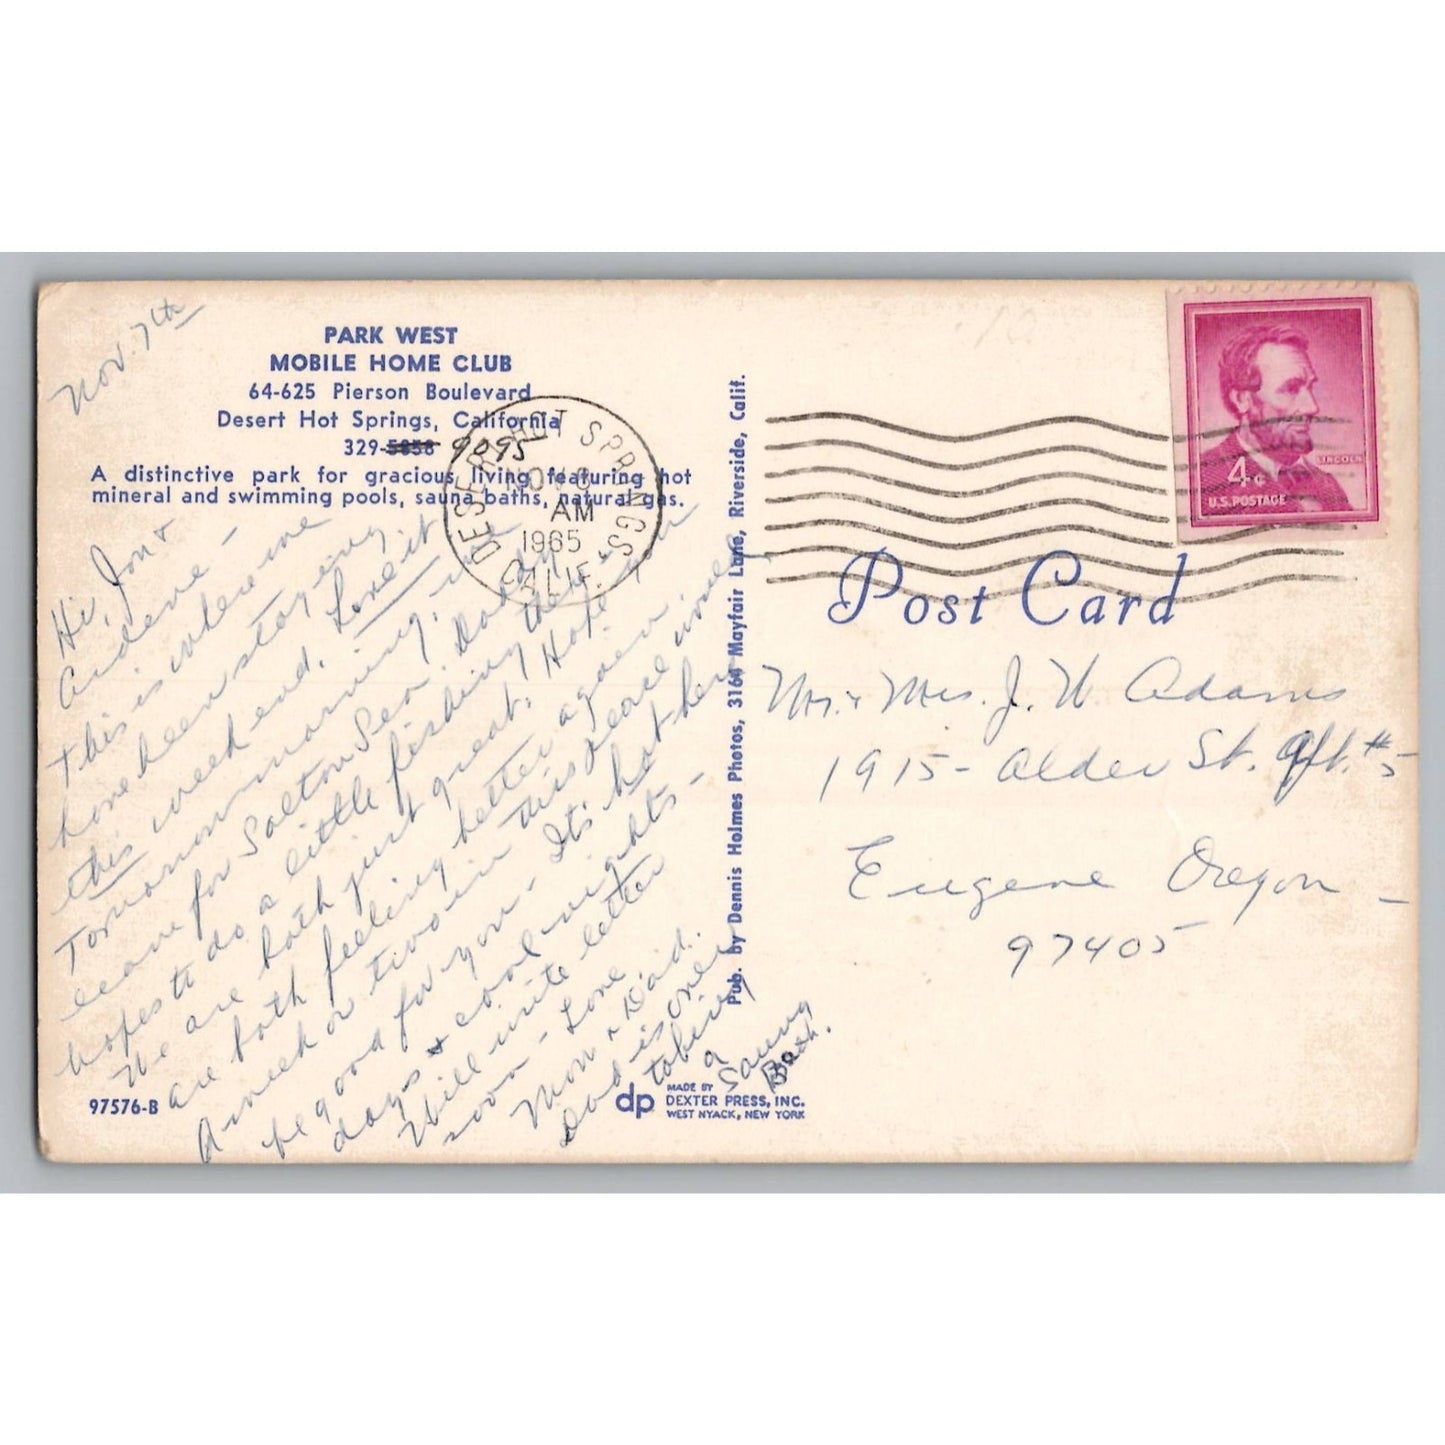 Nov. 7th
PARK WEST
MOBILE HOME CLUB
64-625 Pierson Boulevard
Desert Hot Springs, California
329-5858 9095
A distinctive park for gracious living featuring hot
mineral and swimming pools, sauna baths, natural gas.
Hi, Jon &
Ardene -
This is where we
have been staying
this week end. Love it
Tomorrow morning, we
leave for Salton Sea. Daddy
hopes to do a little fishing there -
We are both just great. Hope you
are both feeling better again.
A week or two in this place would
be good for you - It's hot here
days & cool nights -
Will write letter
soon - Love
Mom & Dad.
Dad is over
taking
a
Sauna
Bath.
97576-B
dp
MADE BY
DEXTER PRESS, INC.
WEST NYACK, NEW YORK
Pub. by Dennis Holmes Photos, 3164 Mayfair Lane, Riverside, Calif.
DESERT HOT SPRINGS
AM
1965
CALIF.
4¢
LINCOLN
U.S. POSTAGE
Post Card
Mr. & Mrs. J. W. Adams
1915 - Alder St. Apt. #5
Eugene Oregon -
97405